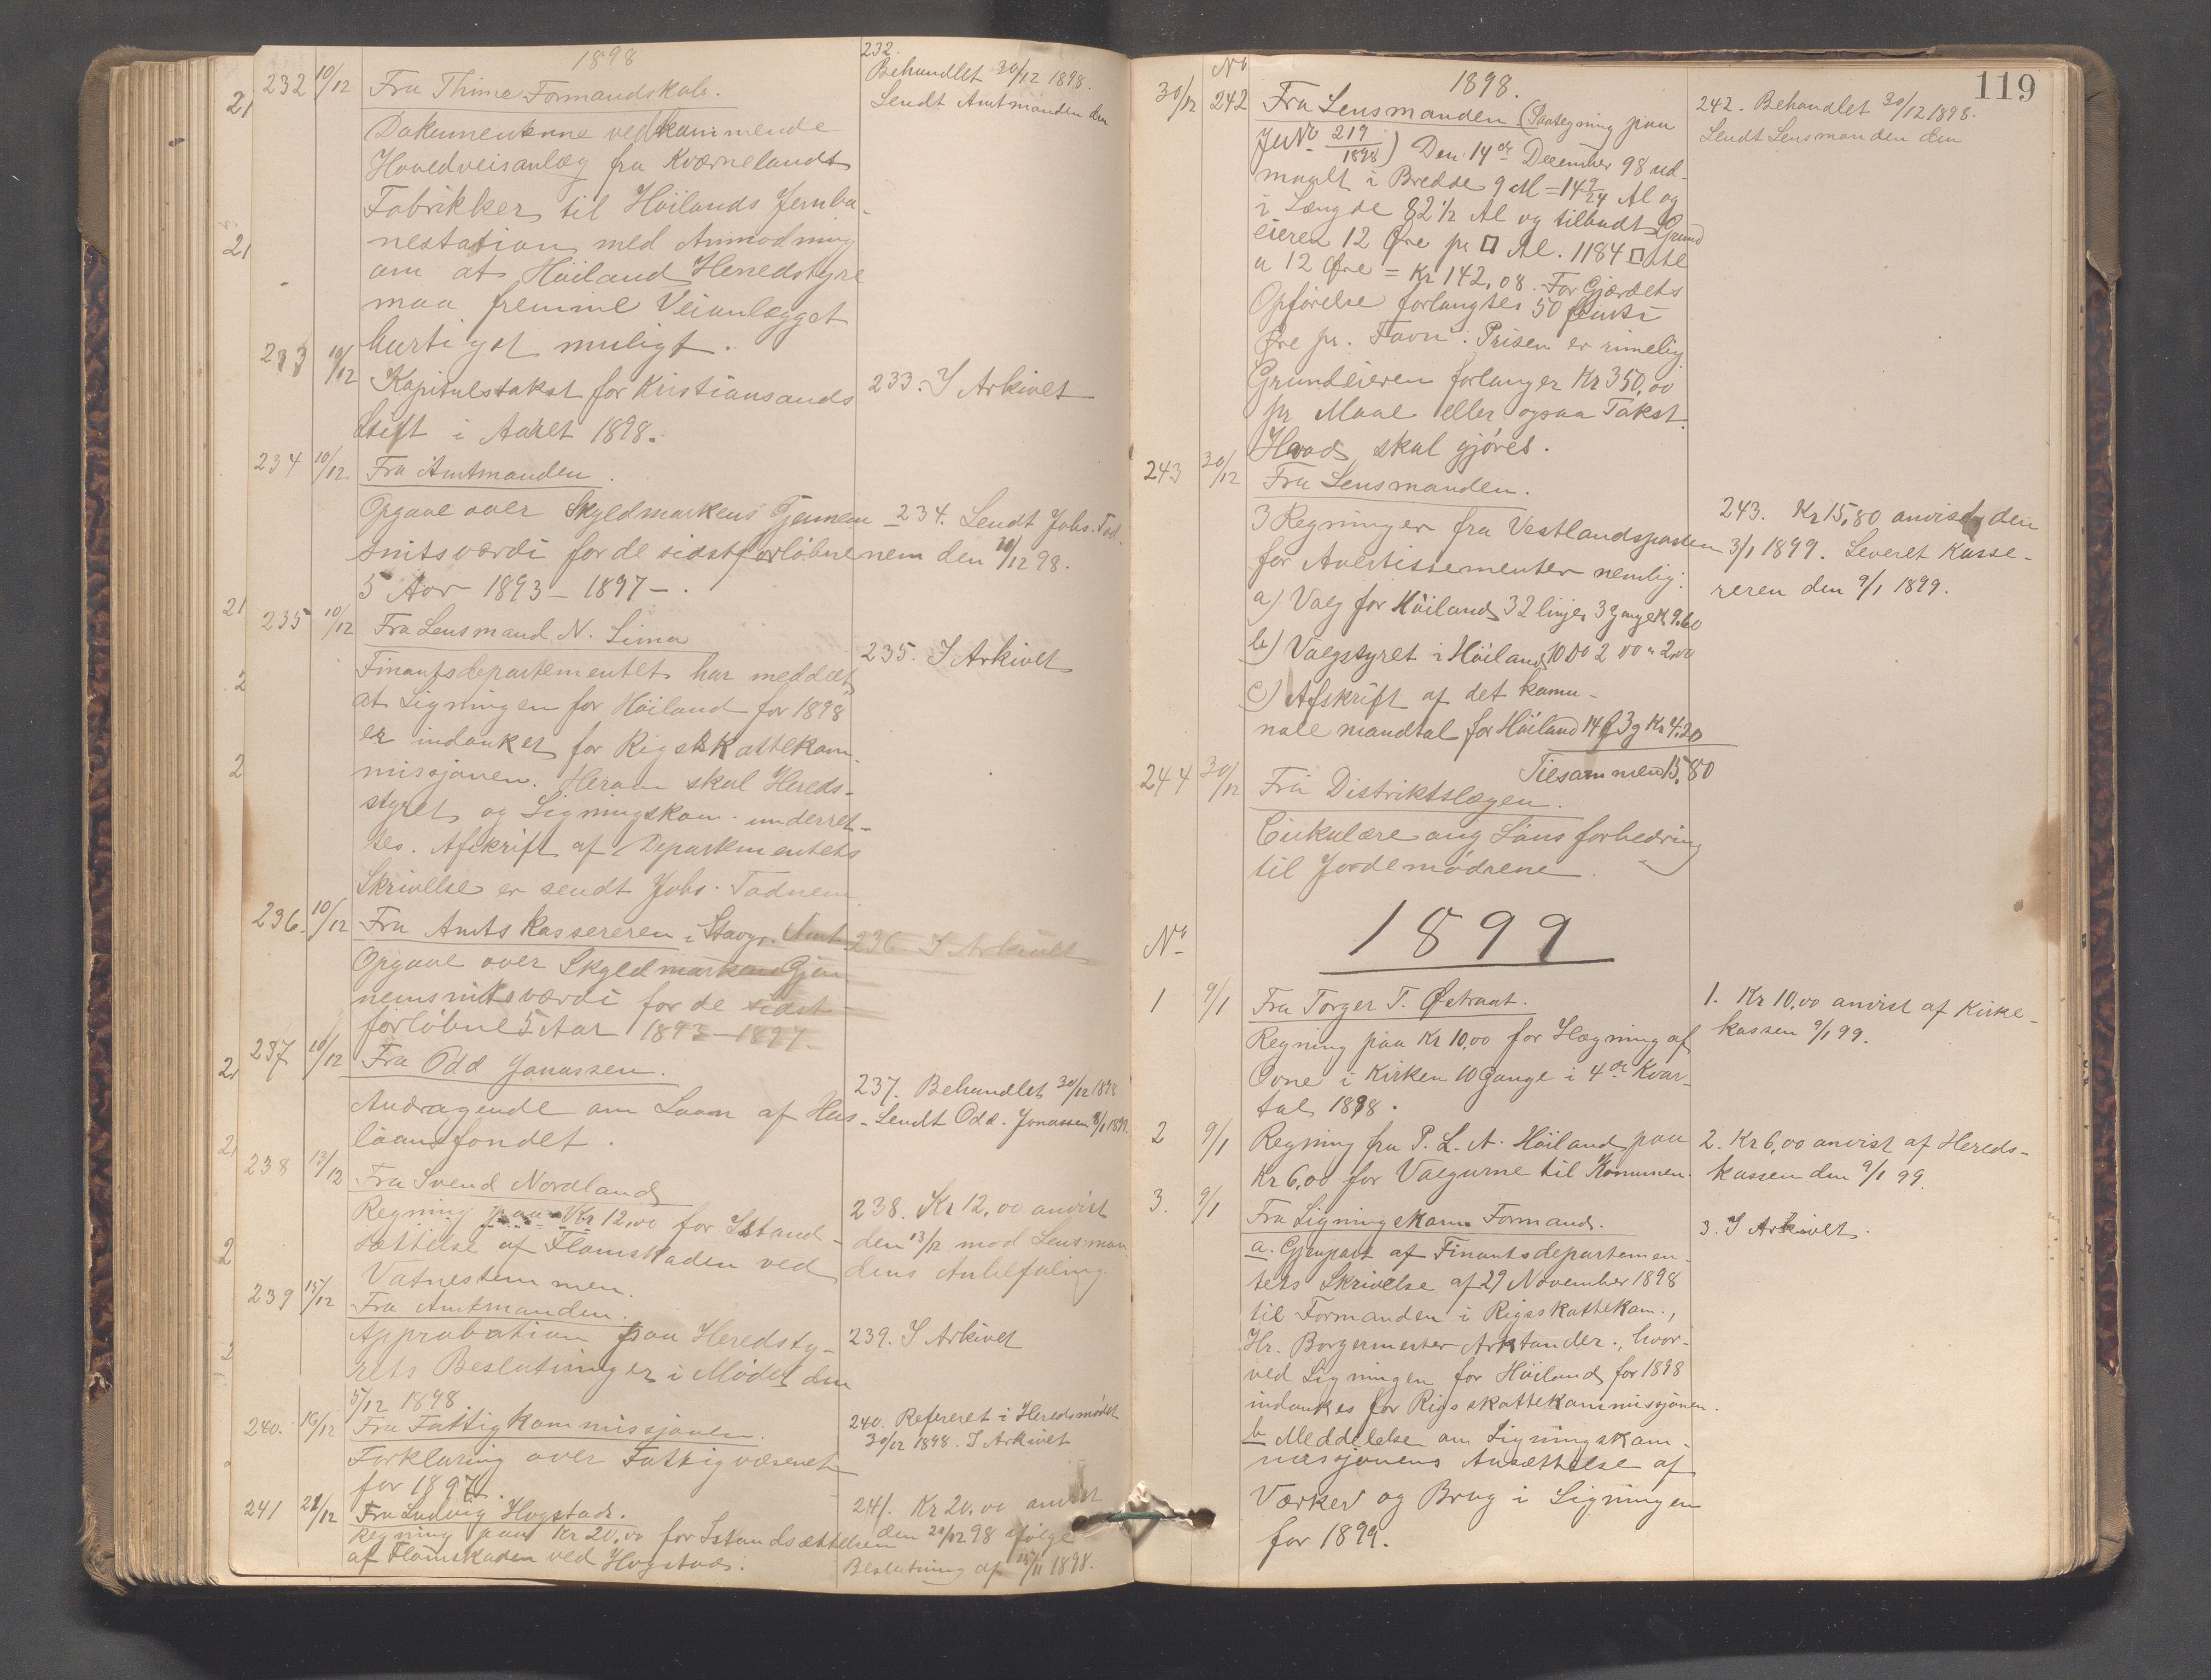 1898
232 10/12 Fra Thime Formandskab.
Dokumenterne vedkommende
Hovedveisanlæg fra Kværnelandts
Fabrikker til Höilands Jernba-
nestation med Anmodning
om at Höiland Heredstyre
maa fremme Veianlægget
hurtigst muligt.
232.
Behandlet 30/12 1898.
Sendt Amtmanden den
233 10/12 Kapitulstakst for Kristiansands
Stift i Aaret 1898.
233. I Arkivet
234 10/12 Fra Amtmanden.
Opgave over Skyldmarkens Gjennem
snitsværdi for de sidstforløbne
5 Aar 1893 - 1897 -.
234. Sendt Johs. Tod-
nem den 11/12 98.
235 10/12 Fra Lensmand N. Lima
Finantsdepartementet har meddelt
at Ligningen for Höiland for 1898
er indanket for Rigsskattekom-
missjonen. Herom skal Hereds-
styret og Ligningskom. underret-
tes. Afskrift af Departementets
Skrivelse er sendt Johs. Todnem.
235. I Arkivet
236. 10/12 Fra Amtskassereren i Stavgr. Amt
Opgave over Skyldmarkens Gjen
nemsnitsværdi for de sidst
forløbne 5 Aar 1893 - 1897 -
236 I Arkivet
237 10/12 Fra Odd Jonassen.
Andragende om Laan af Hus-
låansfondet.
237. Behandlet 30/12 1898
Sendt Odd. Jonassen 3/1 1899.
238 13/12 Fra Svend Nordland
Regning paa Kr 12,00 for Istand-
sættelse af Flomskaden ved
Vatnestemmen.
238. Kr 12,00 anvist
den 13/12 mod Lensman
dens Anbefaling.
239 15/12 Fra Amtmanden.
Approbation paa Heredsty-
rets Beslutninger i Mødet den
5/12 1898.
239. I Arkivet
240. 16/12 Fra Fattigkommissjonen.
Forklaring over Fattigvæsenet
for 1897.
240. Refereret i Heredsmødet
30/12 1898. I Arkivet
241 21/12 Fra Ludvig Hogstad.
Regning paa Kr 20,00 for Istandsættelsen
af Flomskaden ved Hogstad.
241. Kr 20,00 anvist
den 21/12 98 ifølge
Beslutning af 15/11 1898.
119
No 1898.
30/12 242 Fra Lensmanden (Paategning paa
JNo 219/1898) Den 14de December 98 ud-
maalt i Bredde 9 M = 14 9/24 Al og
i Længde 82 1/2 Al og tilbudt Grund
eieren 12 Øre pr □ Al. 1184 □ Al
a 12 Øre = Kr 142,08. For Gjærdets
Opførelse forlangtes 50
Øre pr. Favn. Prisen er rimelig
Grundeieren forlanger Kr 350,00
pr Maal eller ogsaa Takst.
Hvad skal gjøres.
242. Behandlet 30/12 1898.
Sendt Lensmanden den
243 30/12 Fra Lensmanden.
3 Regninger fra Vestlandsposten
for Avertissementer nemlig:
a) Valg for Höiland 32 linjer 3 gange Kr 9.60
b) Valgstyret i Höiland 10 Do 2 Do " 2,00
c) Afskrift af det komu-
nale mandtal for Höiland 14 l 3 g Kr 4.20
Tilsammen 15,80
243. Kr 15,80 anvist den
3/1 1899. Leveret Kasse-
reren den 9/1 1899.
244 30/12 Fra Distriktslægen.
Cirkulære ang Löns forbedring
til Jordemödrene.
No 1899
1 9/1 Fra Torger T. Østraat.
Regning paa Kr 10,00 for Lægning af
Ovne i Kirken 10 Gange i 4de Kvar-
tal 1898.
1. Kr 10,00 anvist af Kirke-
kassen 9/1 99.
2 9/1 Regning fra P. L. A. Höiland paa
Kr 6,00 for Valgurne til Komunen.
2. Kr 6,00 anvist af Hereds-
kassen den 9/1 99.
3. 9/1 Fra Ligningskom. Formand.
a. Gjenpart af Finantsdepartemen-
tets Skrivelse af 29 November 1898
til Formanden i Rigsskattekom.,
Hr. Borgermester Arktander., hvor-
ved Ligningen for Höiland for 1898
indankes for Rigsskattekommissjonen.
b Meddelelse om Ligningskom-
missjonens Ansættelse af
Værker og Brug i Ligningen
for 1899.
3. I Arkivet.